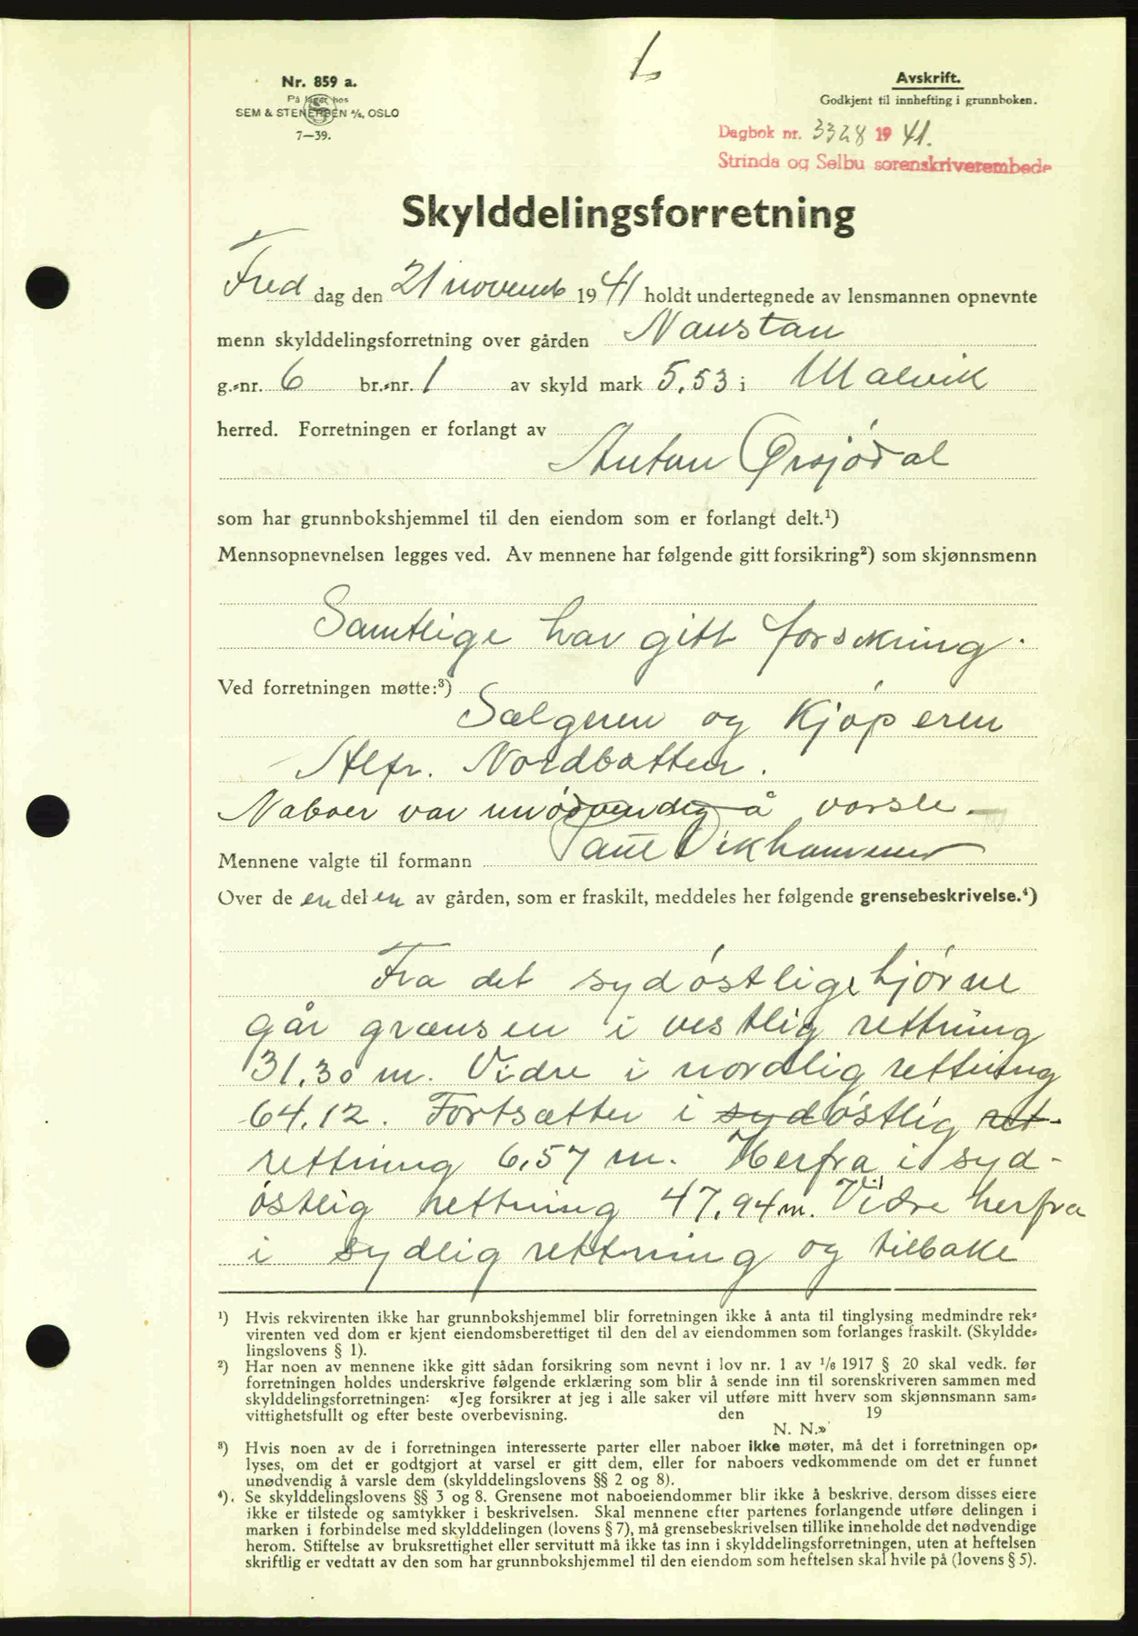 1.
Nr. 859 a.
På lager hos
SEM & STENERSEN A/S, OSLO
7—39.
Avskrift.
Godkjent til innhefting i grunnboken.
Dagbok nr. 3328 1941.
Strinda og Selbu sorenskriverembede
Skylddelingsforretning
Fredag den 21 novemb 1941 holdt undertegnede av lensmannen opnevnte
menn skylddelingsforretning over gården Naustan
g.-nr. 6 br.-nr. 1 av skyld mark 5,53 i Malvik
herred. Forretningen er forlangt av
Anton Ørsjødal
som har grunnbokshjemmel til den eiendom som er forlangt delt.¹)
Mennsopnevnelsen legges ved. Av mennene har følgende gitt forsikring²) som skjønnsmenn
Samtlige har gitt forsikring.
Ved forretningen møtte:³)
Sælgeren og Kjøperen
Alfr. Nordbotten.
Naboer var unødvendig å varsle.
Mennene valgte til formann Paul Vikhammer
Over de en del en av gården, som er fraskilt, meddeles her følgende grensebeskrivelse.⁴)
Fra det sydøstlige hjørne
går grænsen i vestlig rettning
31.30 m. Vidre i nordlig rettning
64.12. Fortsætter i sydøstlig ret-
rettning 6,57 m. Herfra i syd-
østlig rettning 47,94 m. Vidre herfra
i sydlig rettning og tilbake
¹) Hvis rekvirenten ikke har grunnbokshjemmel blir forretningen ikke å anta til tinglysing medmindre rek-
virenten ved dom er kjent eiendomsberettiget til den del av eiendommen som forlanges fraskilt. (Skyldde-
lingslovens § 1).
²) Har noen av mennene ikke gitt sådan forsikring som nevnt i lov nr. 1 av 1/6 1917 § 20 skal vedk. før
forretningen holdes underskrive følgende erklæring som blir å sende inn til sorenskriveren sammen med
skylddelingsforretningen: «Jeg forsikrer at jeg i alle saker vil utføre mitt hverv som skjønnsmann sam-
vittighetsfullt og efter beste overbevisning. den 19
N. N.»
³) Hvis noen av de i forretningen interesserte parter eller naboer ikke møter, må det i forretningen op-
lyses, om det er godtgjort at varsel er gitt dem, eller for naboers vedkommende om det er funnet
unødvendig å varsle dem (skylddelingslovens §§ 2 og 8).
⁴). Se skylddelingslovens §§ 3 og 8. Grensene mot naboeiendommer blir ikke å beskrive, dersom disses eiere
ikke er tilstede og samtykker i beskrivelsen. Skal mennene efter partenes forlangende utføre delingen i
marken i forbindelse med skylddelingen (lovens § 7), må grensebeskrivelsen tillike inneholde det nødvendige
herom. Stiftelse av bruksrettighet eller servitutt må ikke tas inn i skylddelingsforretningen, uten at heftelsen
skriftlig er vedtatt av den som har grunnbokshjemmel til den eiendom som heftelsen skal hvile på (lovens § 5).